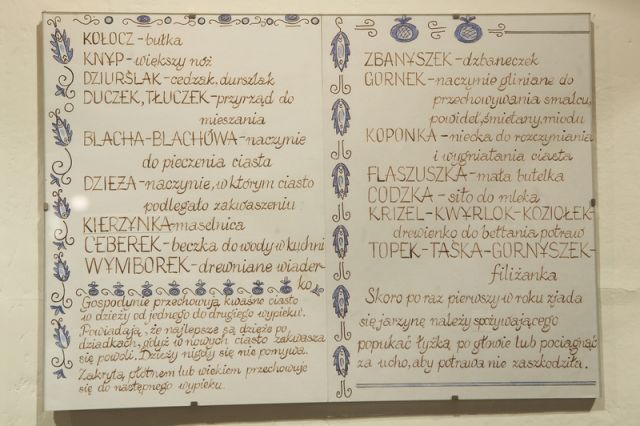 KOŁOCZ-bułka
KNYP-większy nóż
DZIURŚLAK-cedzak, durszlak
DUCZEK, TŁUCZEK-przyrząd do
mieszania
BLACHA-BLACHÓWA-naczynie
do pieczenia ciasta
DZIEŻA-naczynie, w którym ciasto
podlegało zakwaszeniu
KIERZYNKA-maselnica
CEBEREK-beczka do wody w kuchni
WYMBOREK-drewniane wiader-
ko
Gospodynie przechowują kwaśne ciasto
w dzieży od jednego do drugiego wypieku.
Powiadają, że najlepsze są dzieże po
dziadkach, gdyż w nowych ciasto zakwasza
się powoli. Dzieży nigdy się nie pomywa.
Zakrytą płótnem lub wiekiem przechowuje
się do następnego wypieku.
ZBANYSZEK-dzbaneczek
GORNEK-naczynie gliniane do
przechowywania smalcu,
powideł, śmietany, miodu
KOPONKA-niecka do rozczyniania
i wygniatania ciasta
FLASZUSZKA-mała butelka
CODZKA-sito do mleka
KRIZEL-KWYRLOK-KOZIOŁEK-
drewienko do bełtania potraw
TOPEK-TAŚKA-GORNYSZEK-
filiżanka
Skoro po raz pierwszy w roku zjada
się jarzynę należy spożywającego
popukać łyżką po głowie lub pociągnąć
za ucho, aby potrawa nie zaszkodziła.